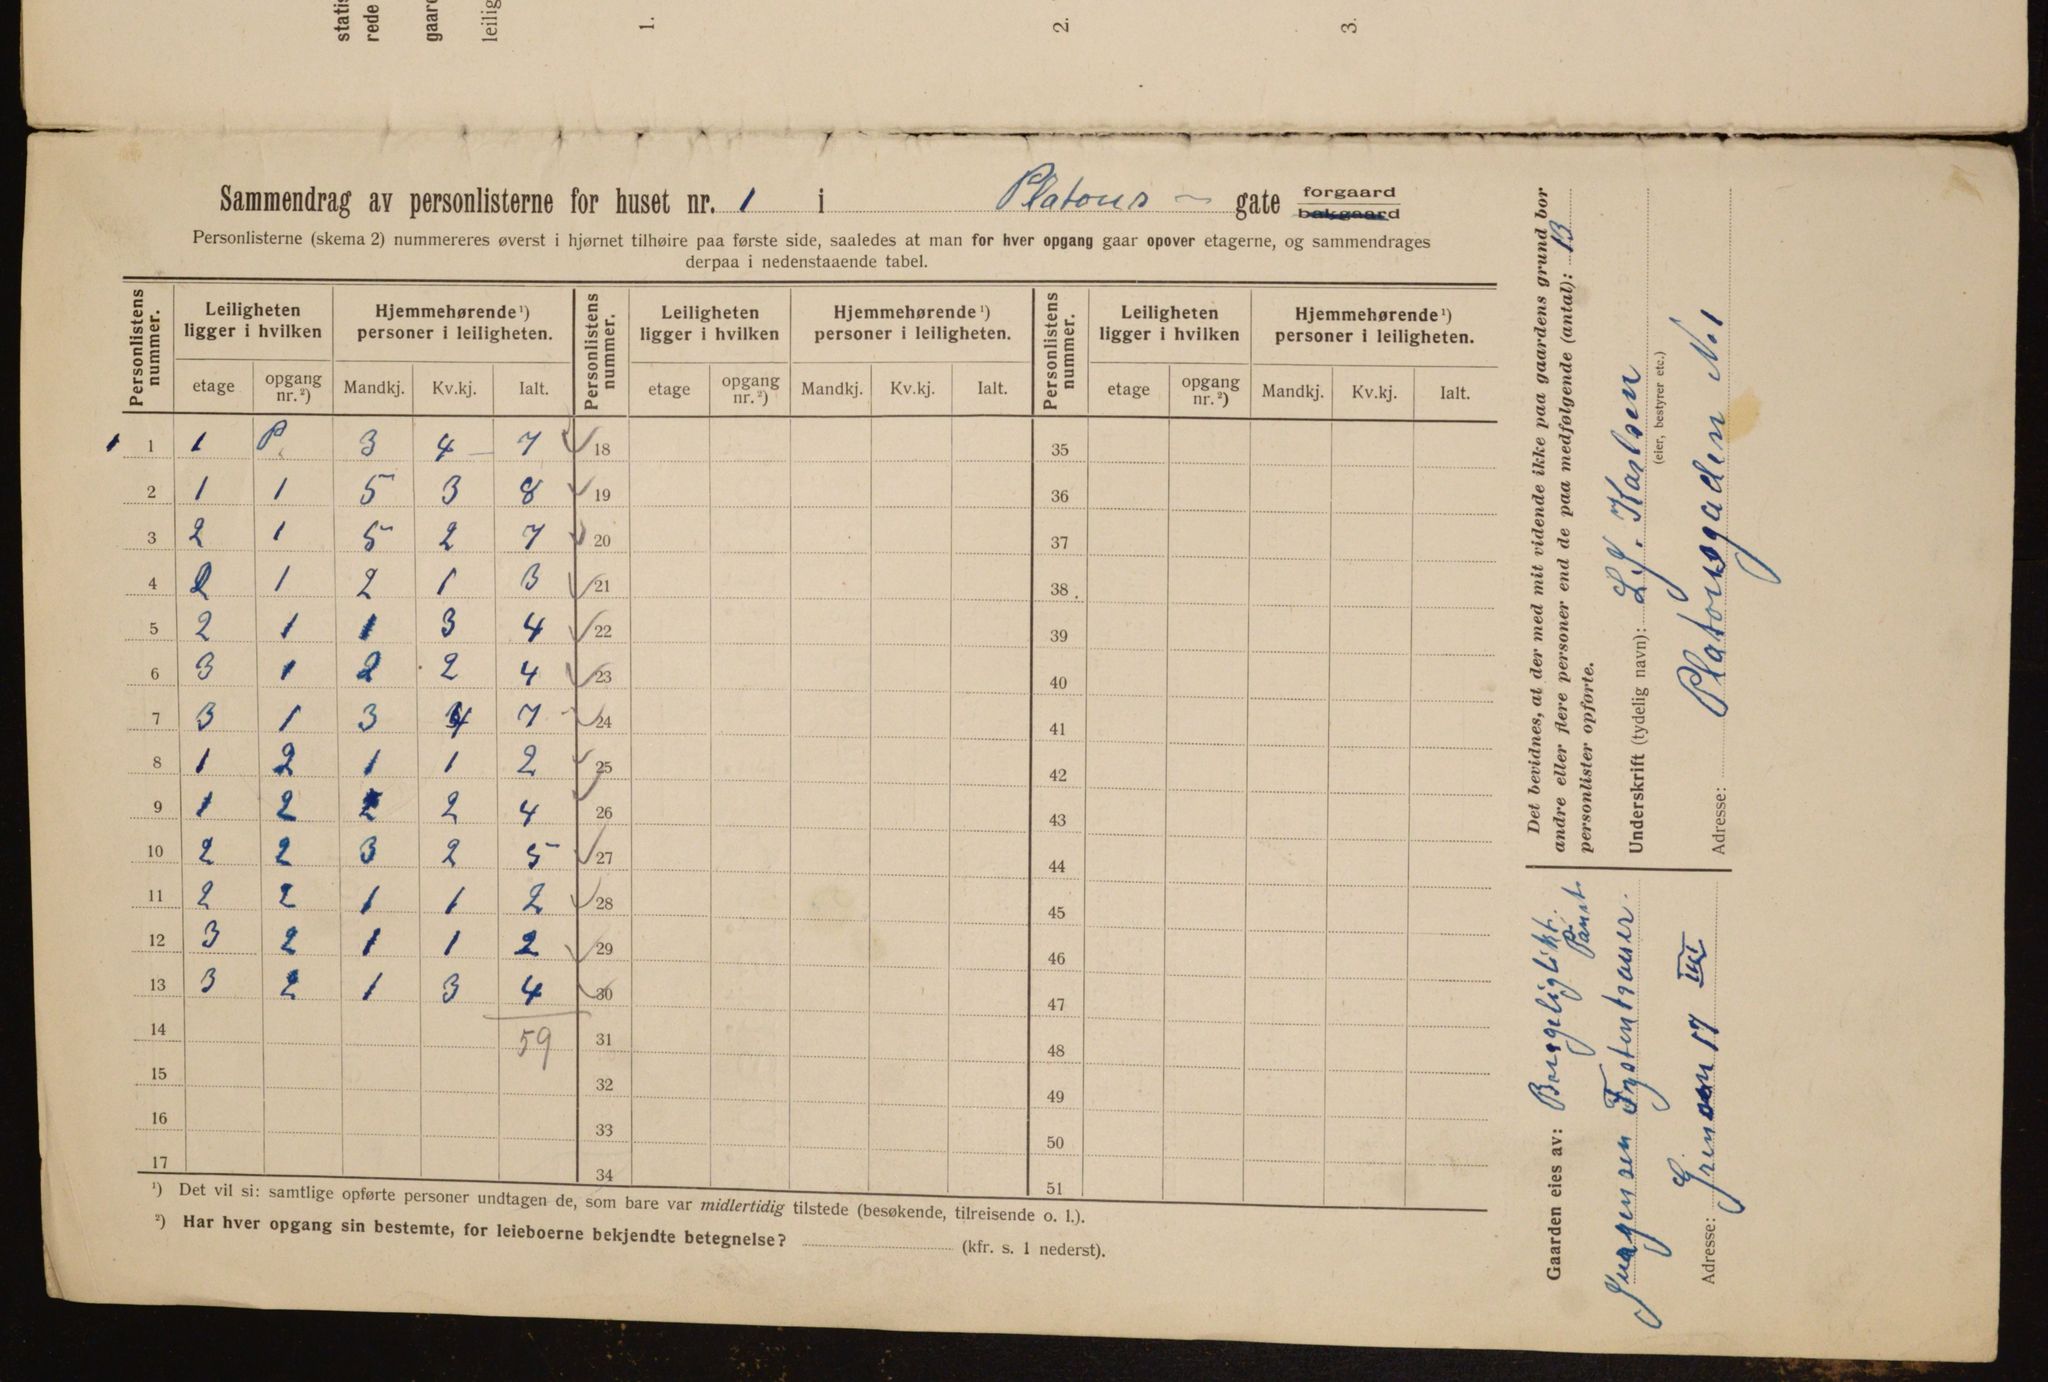 statis
rede
gaare
leilig
1.
2.
3.
Sammendrag av personlisterne for huset nr. 1 i Platous - gate forgaard bakgaard
Personlisterne (skema 2) nummereres øverst i hjørnet tilhøire paa første side, saaledes at man for hver opgang gaar opover etagerne, og sammendrages
derpaa i nedenstaaende tabel.
Personlistens nummer. Leiligheten ligger i hvilken Hjemmehørende ¹) personer i leiligheten. Personlistens nummer. Leiligheten ligger i hvilken Hjemmehørende ¹) personer i leiligheten. Personlistens nummer. Leiligheten ligger i hvilken Hjemmehørende ¹) personer i leiligheten.
etage opgang nr. ²) Mandkj. Kv.kj. Ialt. etage opgang nr. ²) Mandkj. Kv.kj. Ialt. etage opgang nr. ²) Mandkj. Kv.kj. Ialt.
1 1 1 P. 3 4 7 18 35
2 1 1 5 3 8 19 36
3 2 1 5 2 7 20 37
4 2 1 2 1 3 21 38
5 2 1 1 3 4 22 39
6 3 1 2 2 4 23 40
7 3 1 3 4 7 24 41
8 1 2 1 1 2 25 42
9 1 2 2 2 4 26 43
10 2 2 3 2 5 27 44
11 2 2 1 1 2 28 45
12 3 2 1 1 2 29 46
13 3 2 1 3 4 30 47
14 59 31 48
15 32 49
16 33 50
17 34 51
¹) Det vil si: samtlige opførte personer undtagen de, som bare var midlertidig tilstede (besøkende, tilreisende o. l.).
²) Har hver opgang sin bestemte, for leieboerne bekjendte betegnelse? (kfr. s. 1 nederst).
Det bevidnes, at der med mit vidende ikke paa gaardens grund bor
andre eller flere personer end de paa medfølgende (antal): 13
personlister opførte.
Underskrift (tydelig navn): L. J. Karlsen
(eier, bestyrer etc.)
Adresse: Platousgaden No 1
Gaarden eies av:
Adresse: 17 III